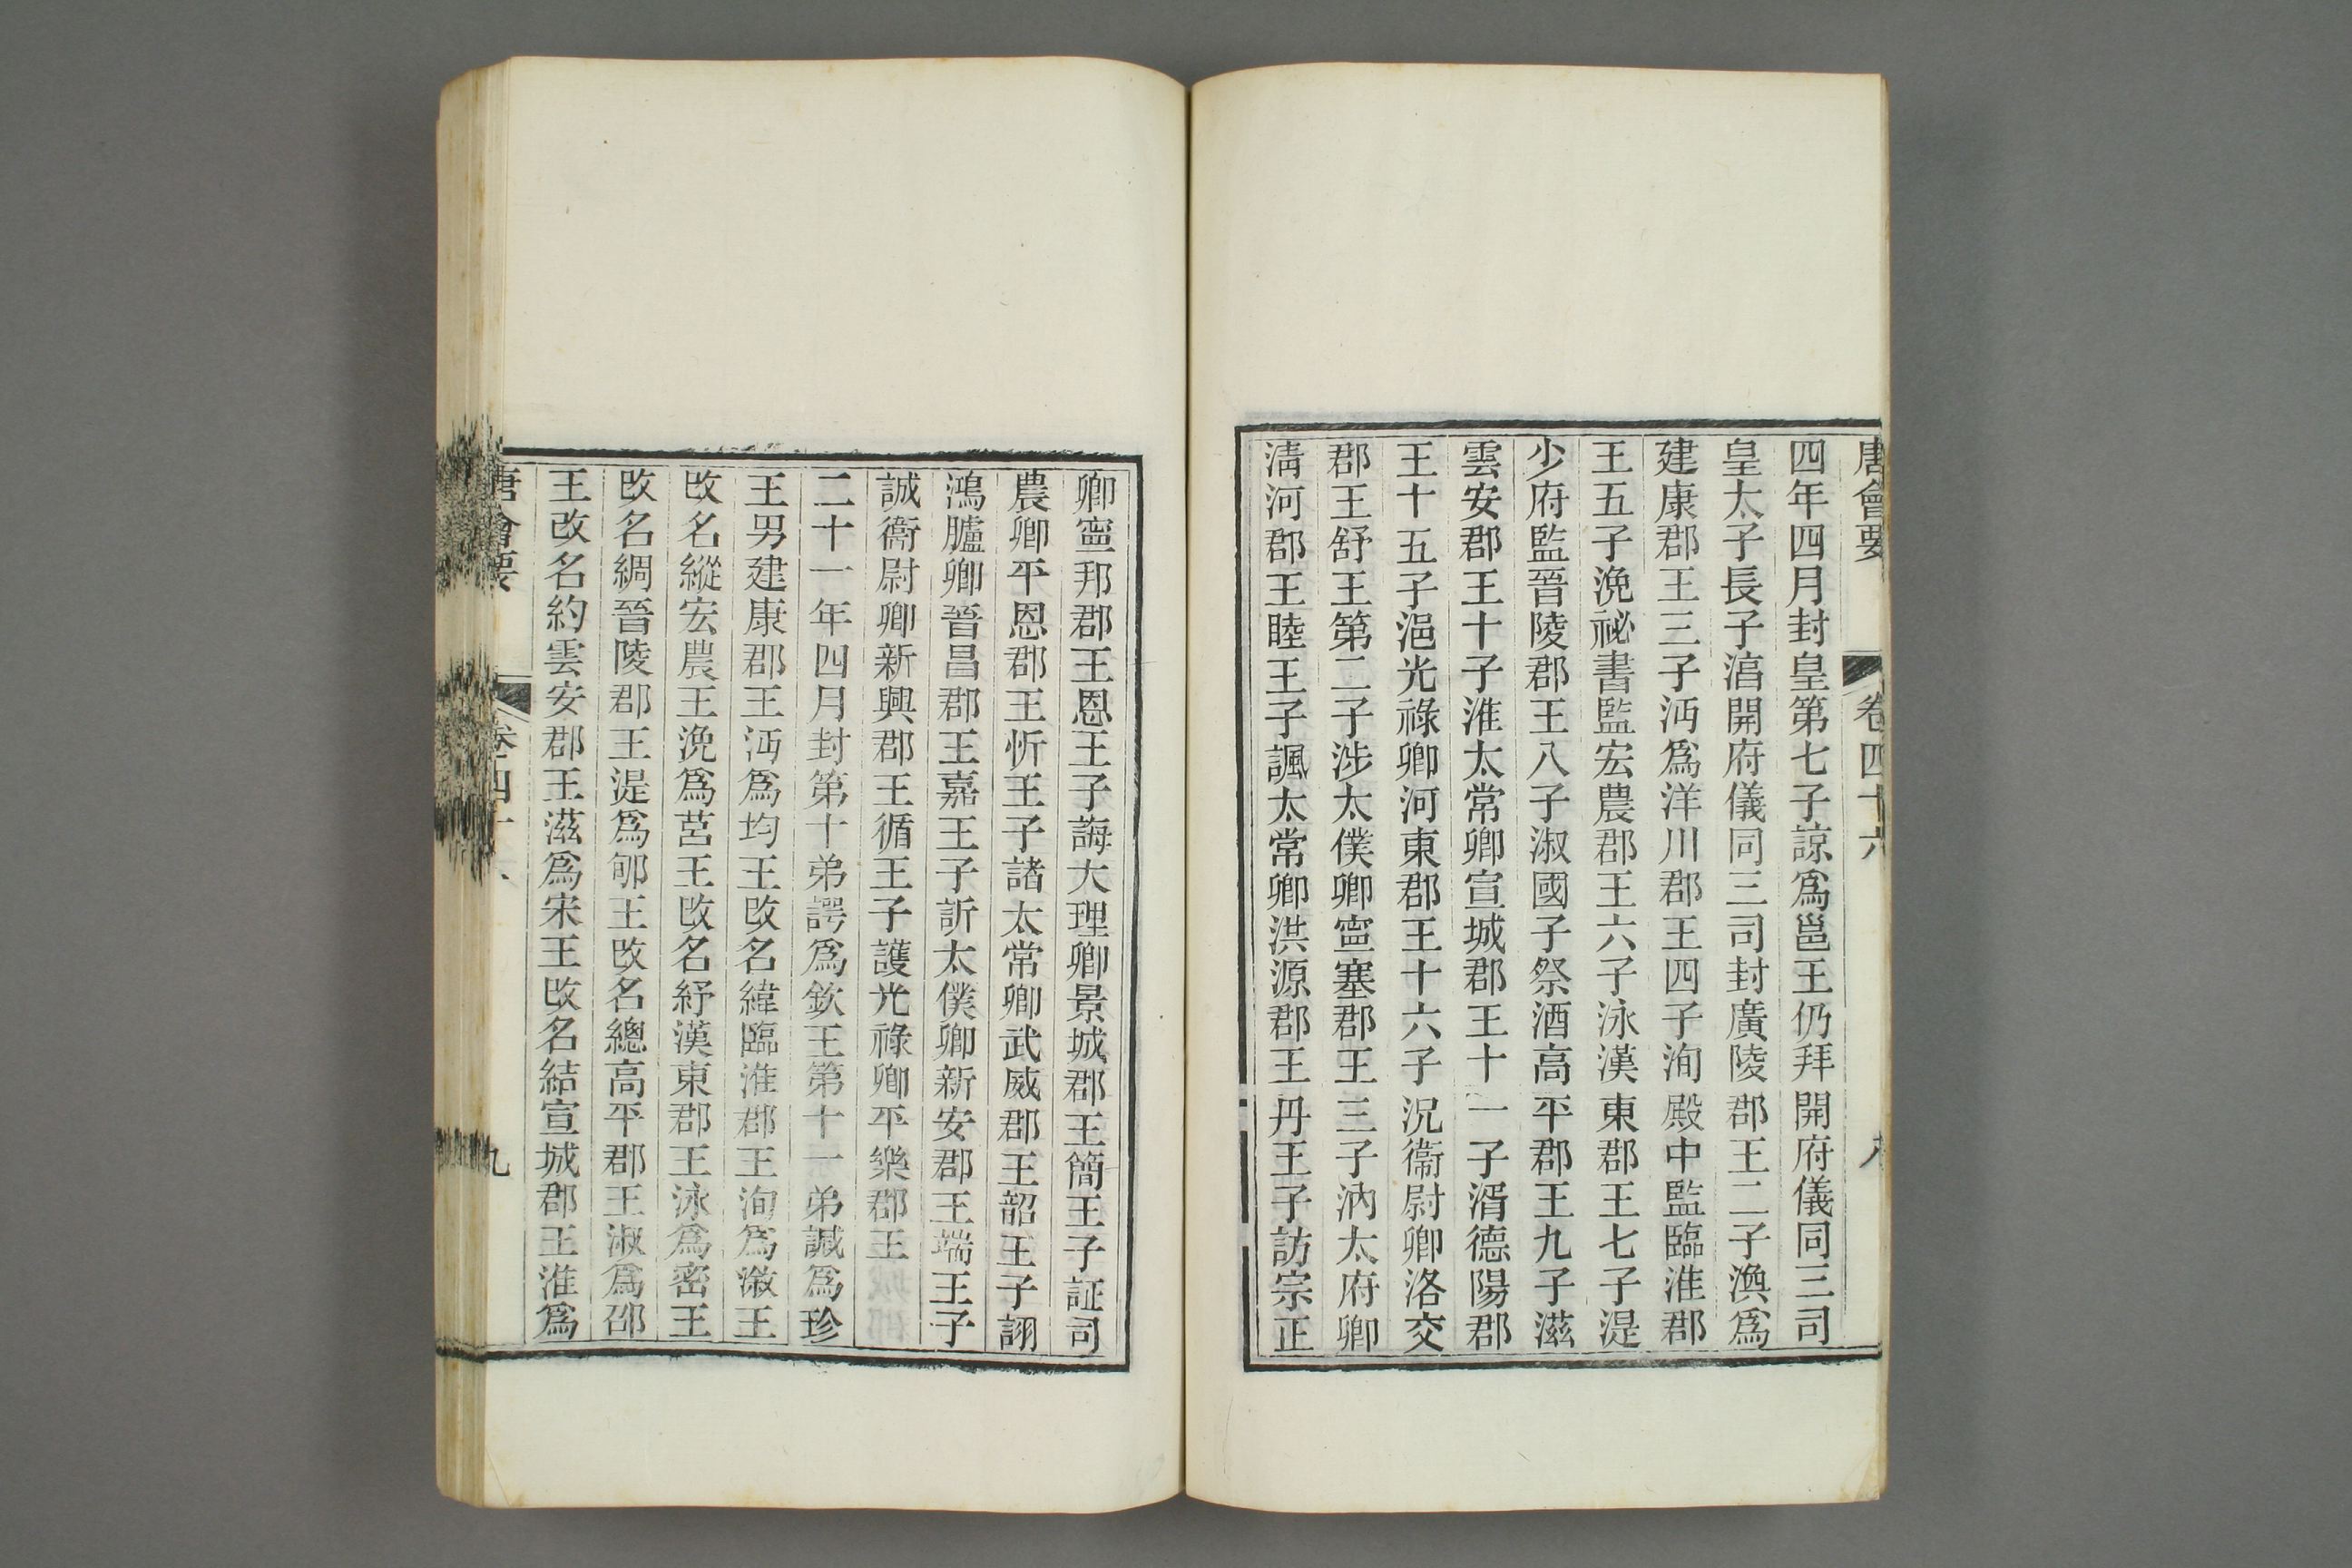 唐會要 卷四十六 八
四年四月封皇第七子諒爲邕王仍拜開府儀同三司
皇太子長子湻開府儀同三司封廣陵郡王二子渙爲
建康郡王三子沔爲洋川郡王四子洵殿中監臨淮郡
王五子浼祕書監宏農郡王六子泳漢東郡王七子湜
少府監晉陵郡王八子淑國子祭酒高平郡王九子滋
雲安郡王十子淮太常卿宣城郡王十一子湑德陽郡
王十五子浥光祿卿河東郡王十六子況衞尉卿洛交
郡王舒王第二子涉太僕卿寍塞郡王三子汭太府卿
淸河郡王睦王子諷太常卿洪源郡王丹王子訪宗正
卿寍邦郡王恩王子誨大理卿景城郡王簡王子証司
農卿平恩郡王忻王子諸太常卿武威郡王韶王子詡
鴻臚卿晉昌郡王嘉王子訢太僕卿新安郡王端王子
誠衞尉卿新興郡王循王子護光祿卿平樂郡王
二十一年四月封第十弟諤爲欽王第十一弟諴爲珍
王男建康郡王沔爲均王改名緯臨淮郡王洵爲漵王
改名縱宏農王浼爲莒王改名紓漢東郡王泳爲密王
改名綢晉陵郡王湜爲郇王改名總高平郡王淑爲邵
王改名約雲安郡王滋爲宋王改名結宣城郡王淮爲
唐會要 卷四十六 九